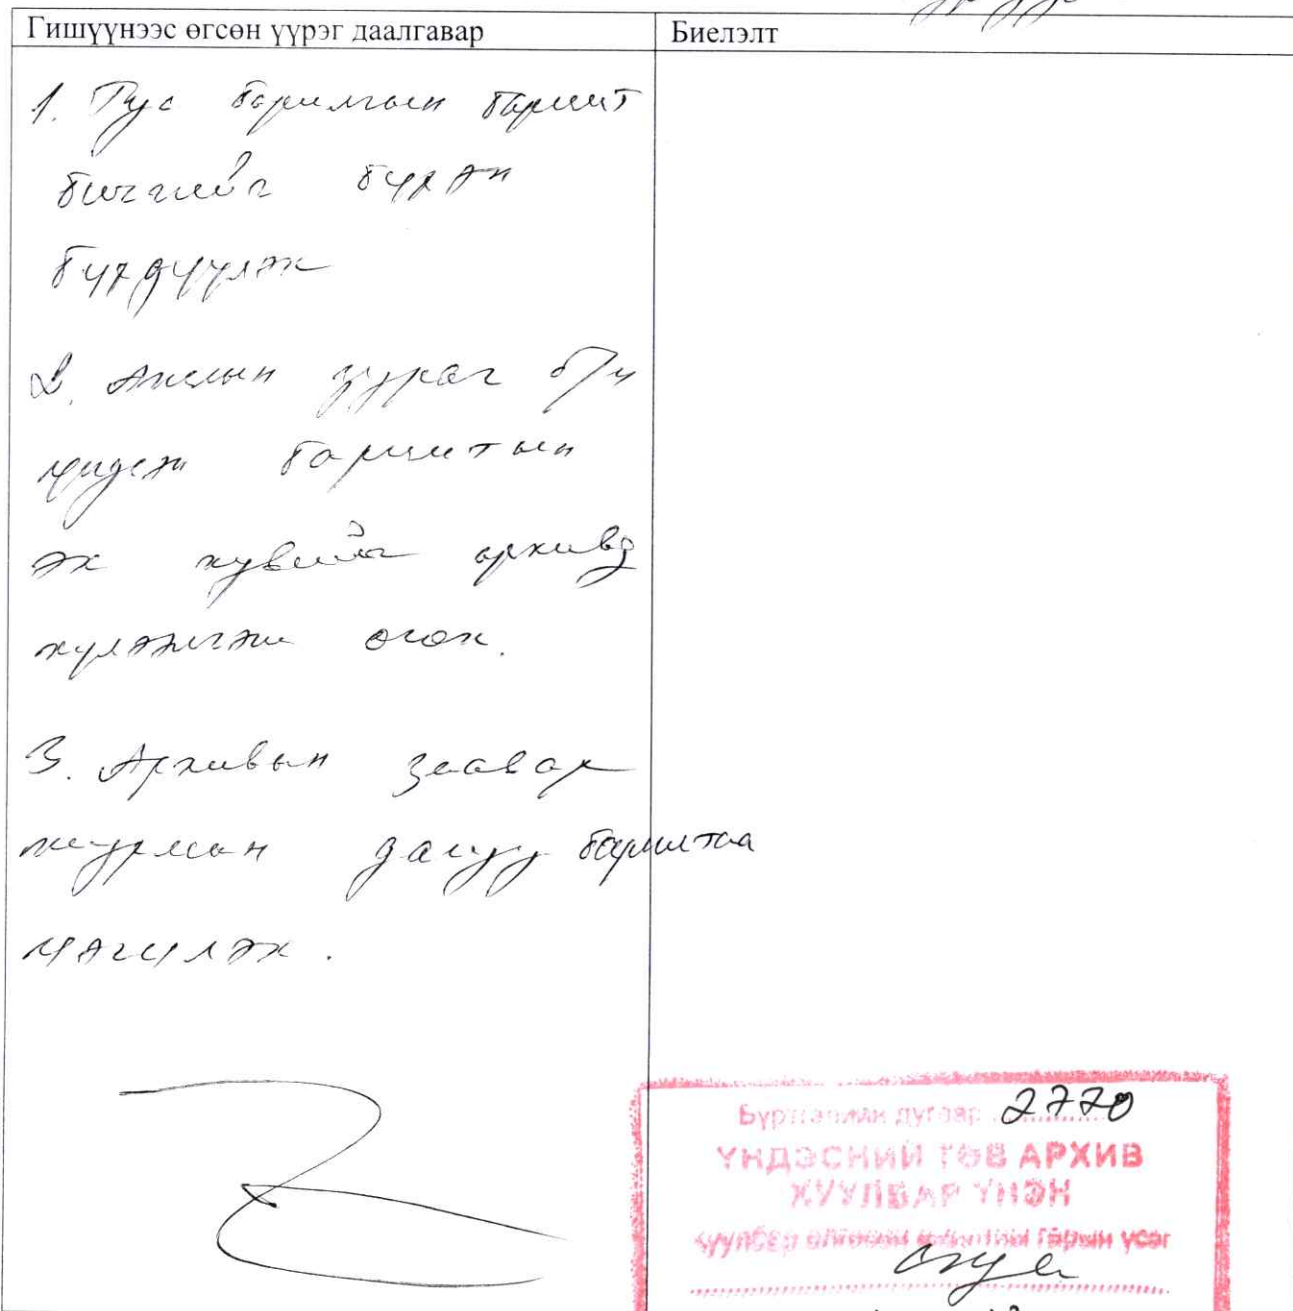 Гишүүнээс өгсөн үүрэг даалгавар
Биелэлт
1. Тус барилгын баримт
бичгийг бүрэн
бүрдүүлэх
2. Ажлын зураг б/ч
үндсэн баримтын
эх хувийг архивд
хүлээлгэж өгөх.
3. Архивын заавар
журмын дагуу баримтаа
цэгцлэх.
Бүртгэлийн дугаар 2770
ҮНДЭСНИЙ ТӨВ АРХИВ
ХУУЛБАР ҮНЭН
хуулбар олгосон ажилтны гарын үсэг